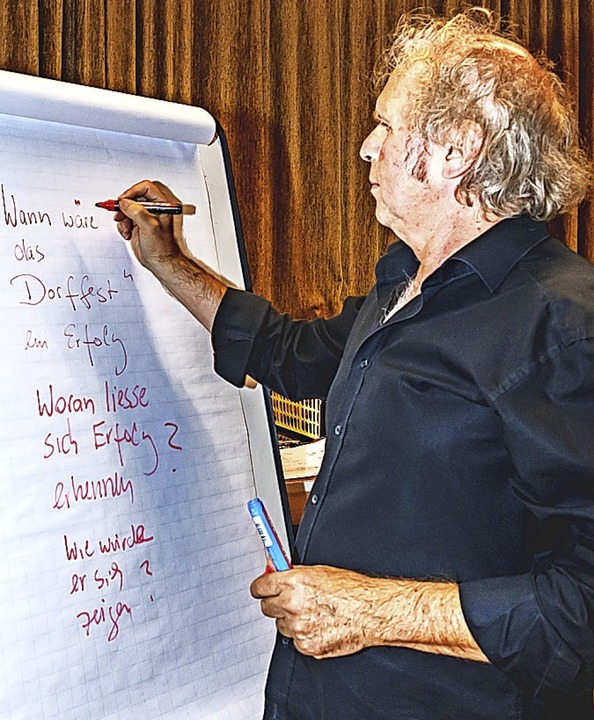 Wann wäre
das
Dorffest"
ein Erfolg
Woran liesse
sich Erfolg?
erkennen
Wie würde
er sich ?
zeigen